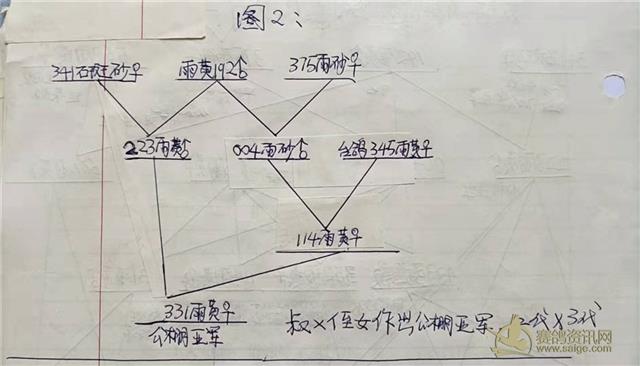 图2:
341石斑砂♀ 雨黄192♂ 375雨砂♀
223雨黄♂ 004雨砂♂ 台鸽345雨黄♀
114雨黄♀
331雨黄♀
公棚亚军
叔X侄女作出公棚亚军 2代X3代
赛鸽资讯网
www.saige.com